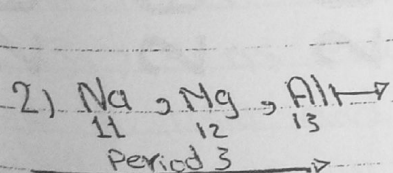 2) Na, Mg, Al
11 12 13
Period 3